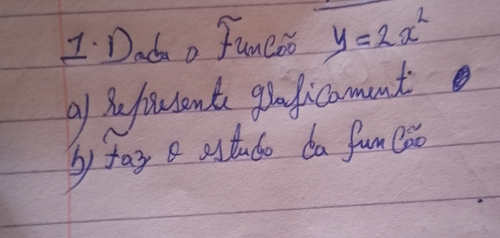 1. Dada o Função y = 2x²
a) represente graficament
b) Faz o estudo da função